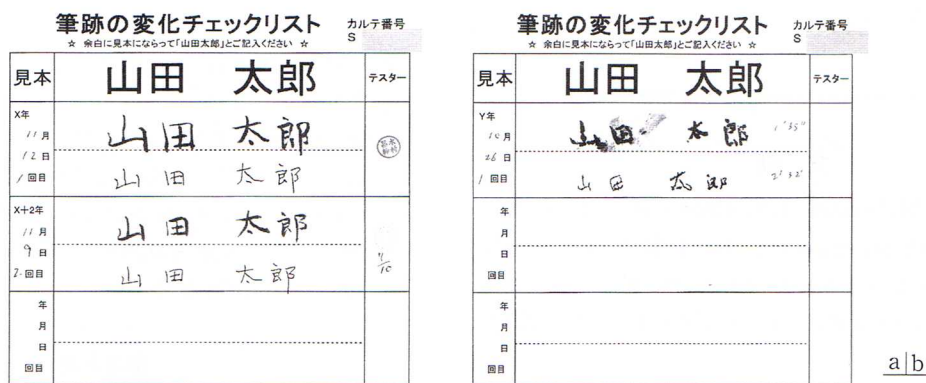 筆跡の変化チェックリスト
カルテ番号
☆ 余白に見本にならって「山田太郎」とご記入ください ☆
S
見本
山田 太郎
テスター
X年
11月
12日
1回目
山田 太郎
山田 太郎
X+2年
11月
9日
2回目
山田 太郎
山田 太郎
年
月
日
回目
筆跡の変化チェックリスト
カルテ番号
☆ 余白に見本にならって「山田太郎」とご記入ください ☆
S
見本
山田 太郎
テスター
Y年
10月
26日
1回目
山田 太郎 1'35"
山田 太郎 2'32"
年
月
日
回目
年
月
日
回目
a|b